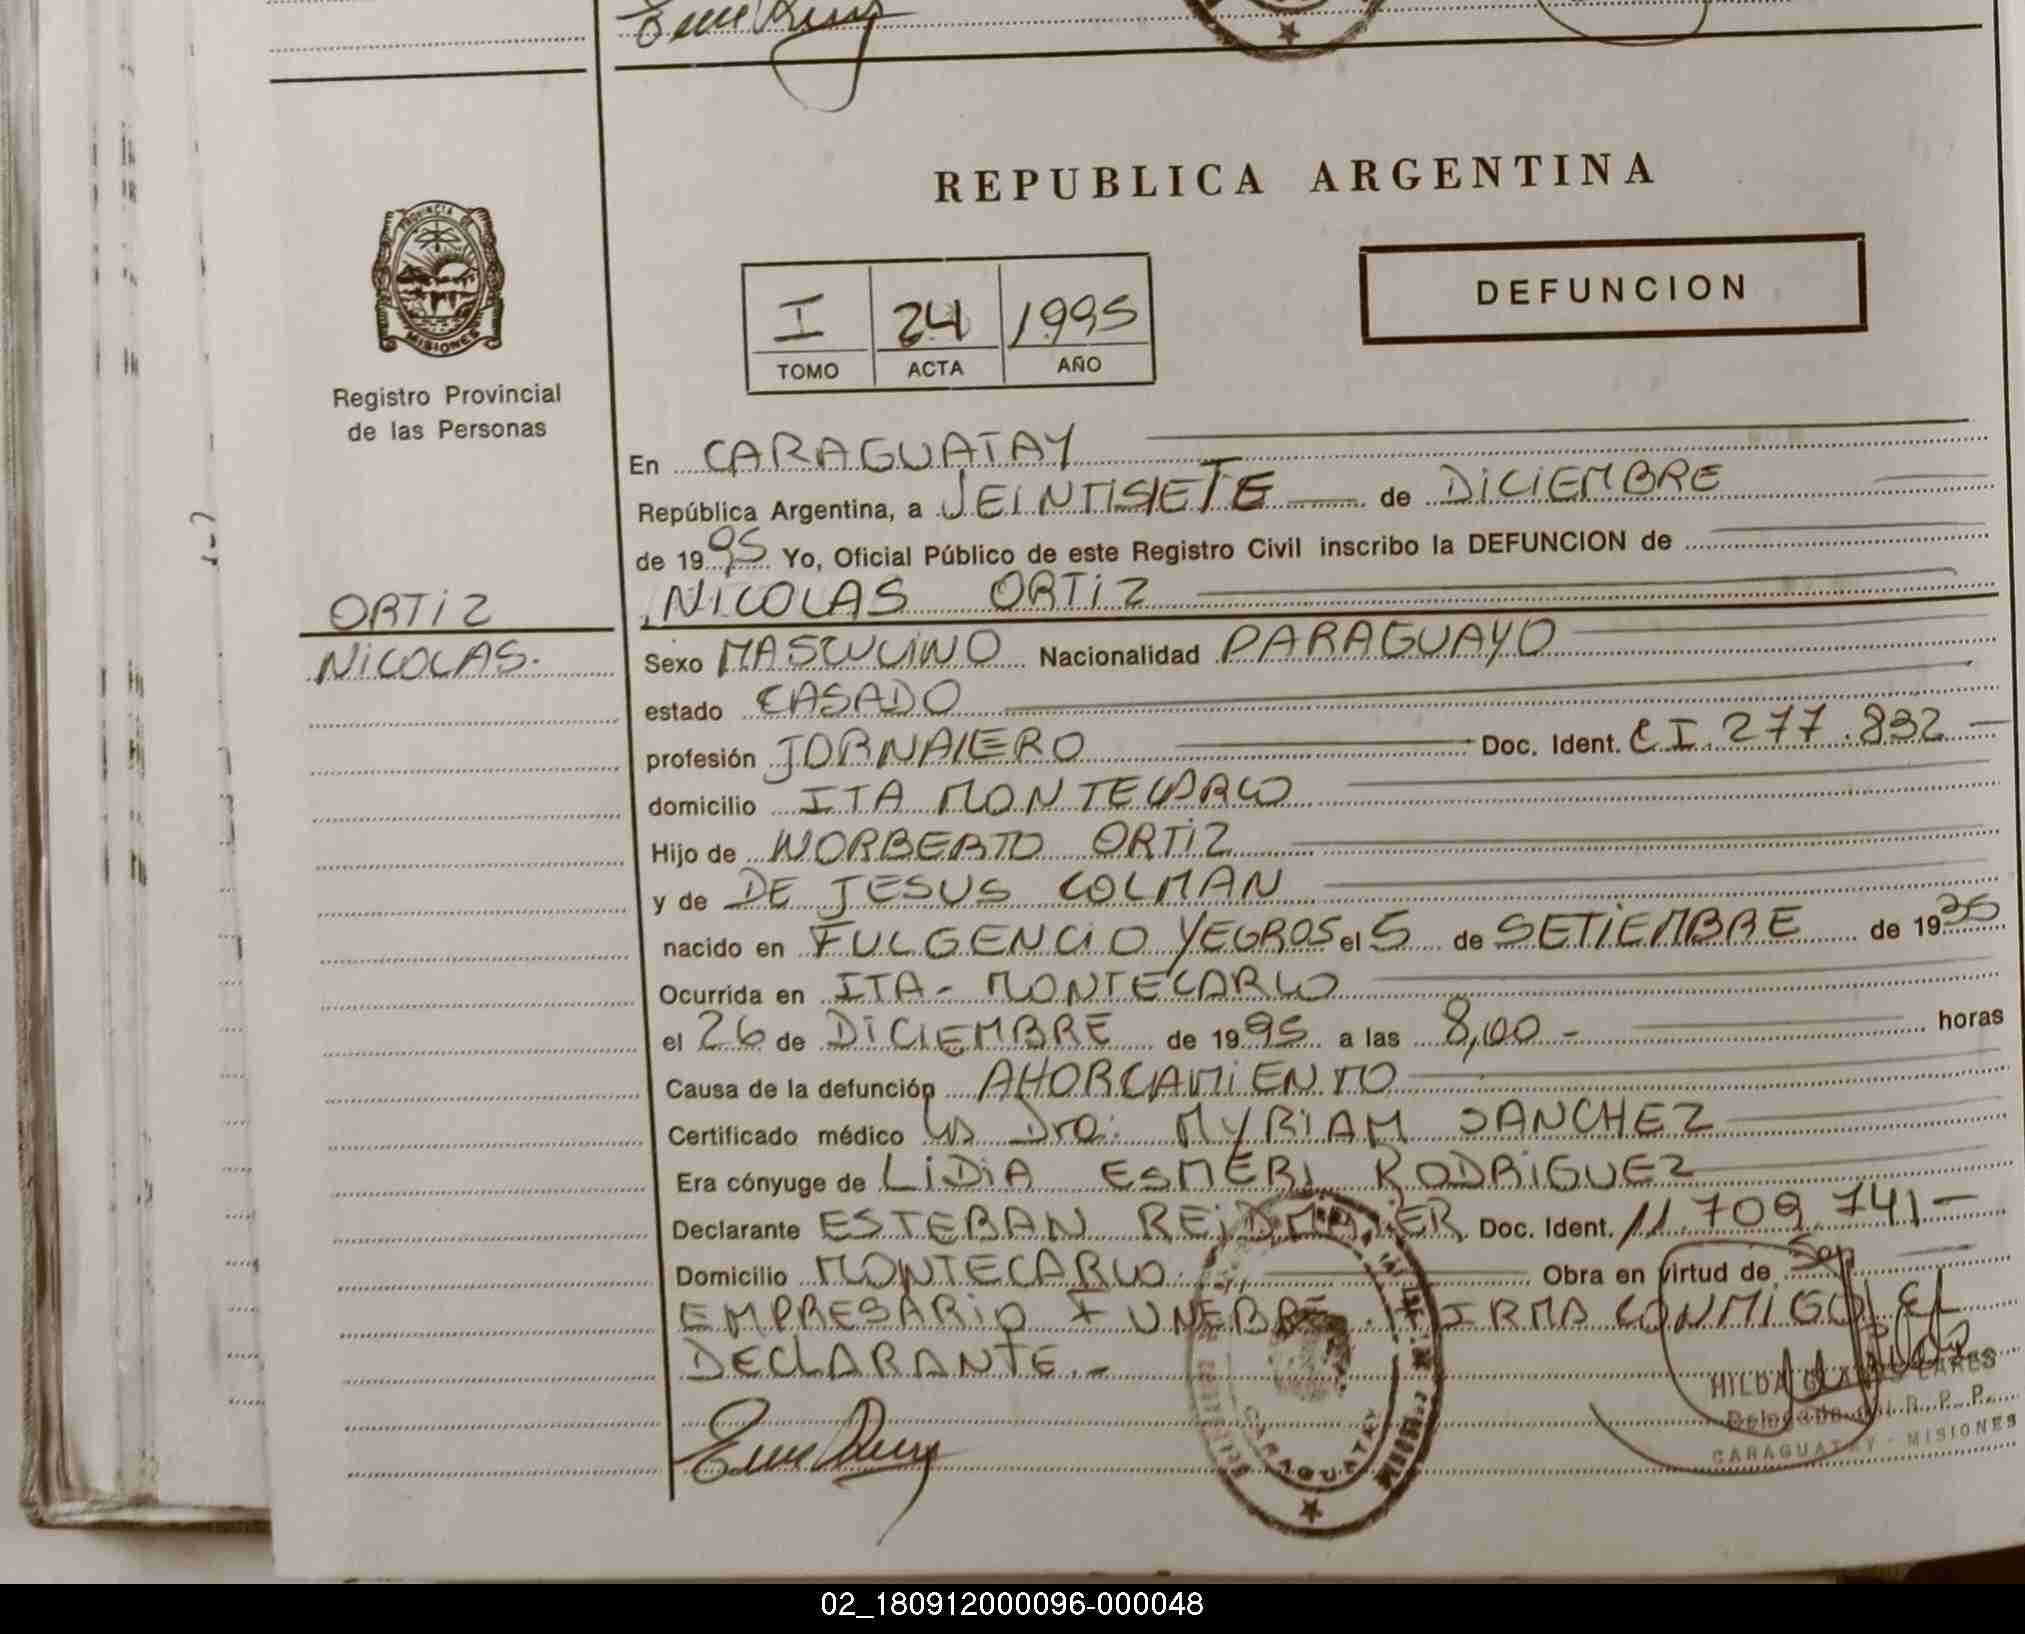 REPUBLICA ARGENTINA
PROVINCIA DE
MISIONES
Registro Provincial
de las Personas
DEFUNCION
I 24 1995
TOMO ACTA AÑO
En CARAGUATAY
República Argentina, a VEINTISIETE de DICIEMBRE
de 1995 Yo, Oficial Público de este Registro Civil inscribo la DEFUNCION de
NICOLAS ORTIZ
ORTIZ
NICOLAS.
Sexo MASCULINO Nacionalidad PARAGUAYO
estado CASADO
profesión JORNALERO Doc. Ident. C I. 277.832 -
domicilio ITA MONTECARLO
Hijo de NORBERTO ORTIZ
y de DE JESUS COLMAN
nacido en FULGENCIO YEGROS el 5 de SETIEMBRE de 1935
Ocurrida en ITA - MONTECARLO
el 26 de DICIEMBRE de 1995 a las 8,00 - horas
Causa de la defunción AHORCAMIENTO
Certificado médico Dra: MYRIAM SANCHEZ
Era cónyuge de LIDIA ESMERI RODRIGUEZ
Declarante ESTEBAN REIDMAIER Doc. Ident. 11.709.741 -
Domicilio MONTECARLO. Obra en virtud de Ser
EMPRESARIO FUNEBRE. FIRMA CONMIGO EL
DECLARANTE. -
HILDA
R. P. P.
CARAGUATAY - MISIONES
CARAGUATAY
02_180912000096-000048